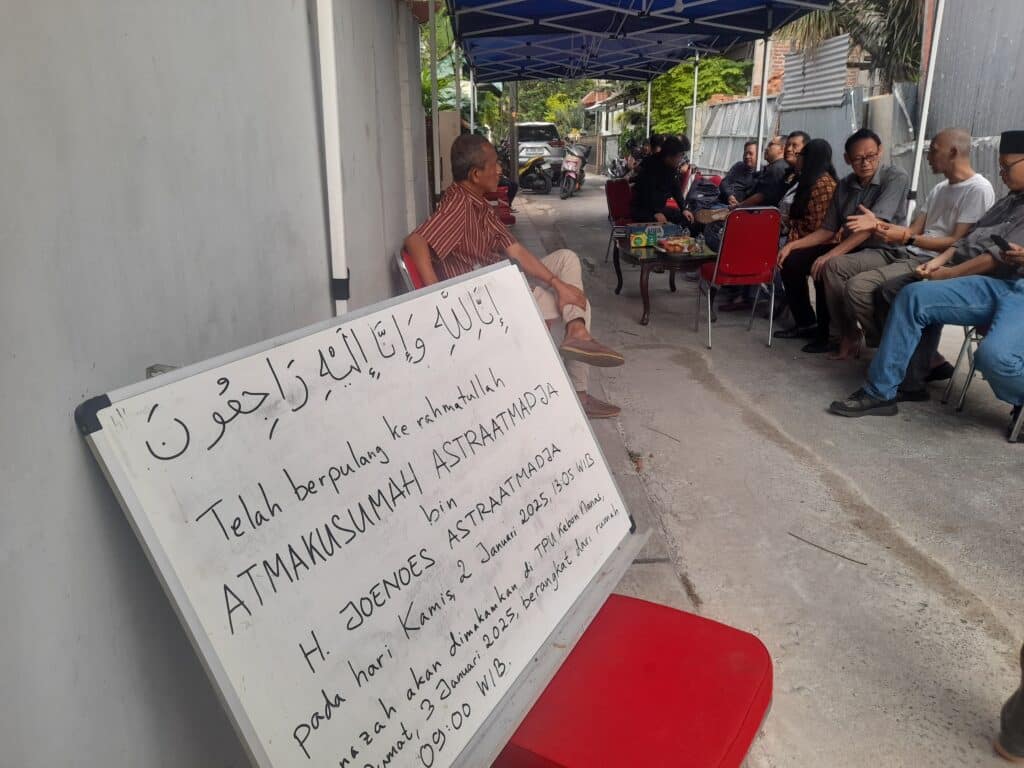 إِنَّا لِلّٰهِ وَإِنَّا إِلَيْهِ رَاجِعُونَ
Telah berpulang ke rahmatullah
ATMAKUSUMAH ASTRAATMADJA
bin
H. JOENOES ASTRAATMADJA
pada hari Kamis, 2 Januari 2025, 13:05 WIB
nazah akan dimakamkan di TPU Kebon Nanas,
umat, 3 Januari 2025, berangkat dari rumah
09:00 WIB.